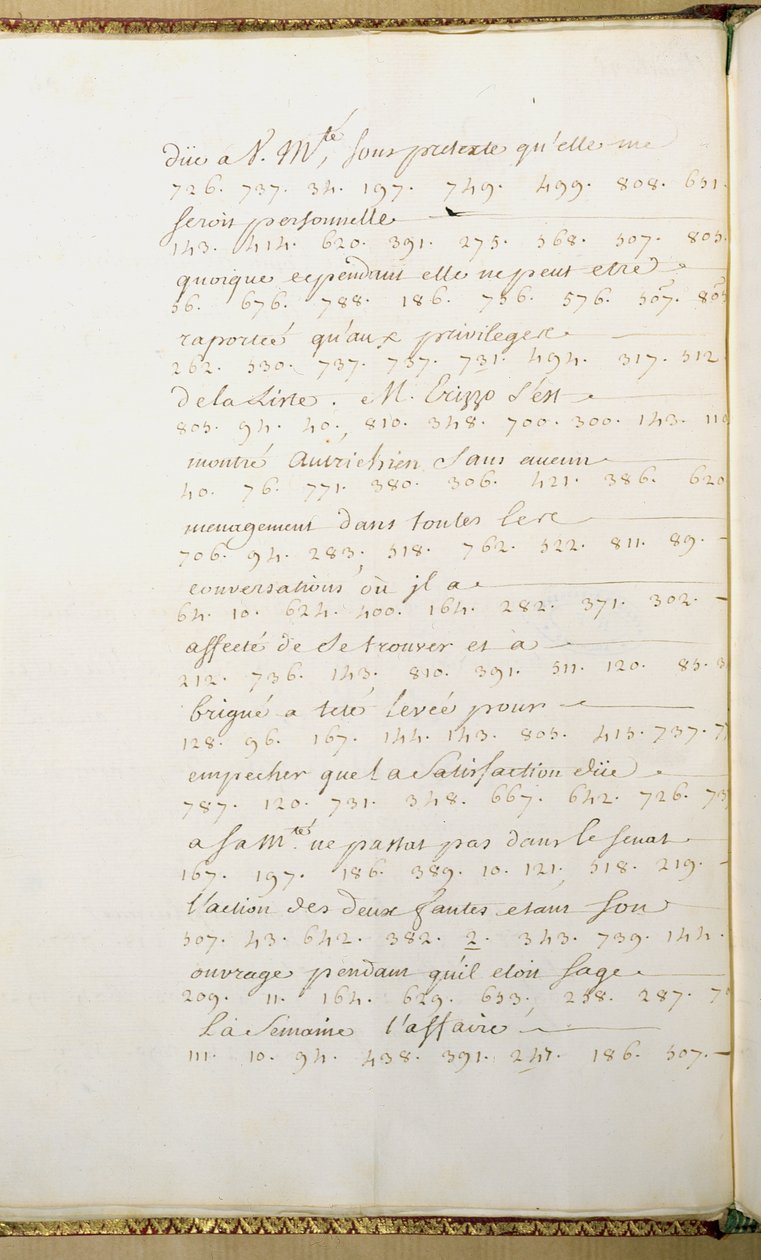 düe a V. M.té, sous pretexte qu'elle me
726. 737. 34. 197. 749. 499. 808. 651.
seroit personnelle
143. 414. 620. 391. 275. 568. 507. 805.
quoique cependant elle ne peut etre
56. 676. 788. 186. 756. 576. 507. 805
raportée qu'aux privileges
262. 530. 737. 757. 731. 494. 317. 512
de la Liste. M. Erizzo s'est
805. 94. 40. 810. 348. 700. 300. 143. 110
montré Autrichien sans aucun
40. 76. 771. 380. 306. 421. 386. 620
menagement dans toutes les
706. 94. 283. 518. 762. 522. 811. 89.
conversations où il a
64. 10. 624. 400. 164. 282. 371. 302.
affecté de se trouver et a
212. 736. 143. 810. 391. 511. 120. 85. 3
brigué a teté levée pour
128. 96. 167. 144. 143. 805. 415. 737. 7
empecher que la Satisfaction düe
787. 120. 731. 348. 667. 642. 726. 73
a Sa M.té ne passat pas dans le senat
167. 197. 186. 389. 10. 121. 518. 219.
l'action des deux fautes etant son
507. 43. 642. 382. 2. 343. 739. 144.
ouvrage pendant qu'il etoit sage
209. 11. 164. 629. 653. 258. 287. 7
La Semaine l'affaire
111. 10. 94. 438. 391. 247. 186. 507.